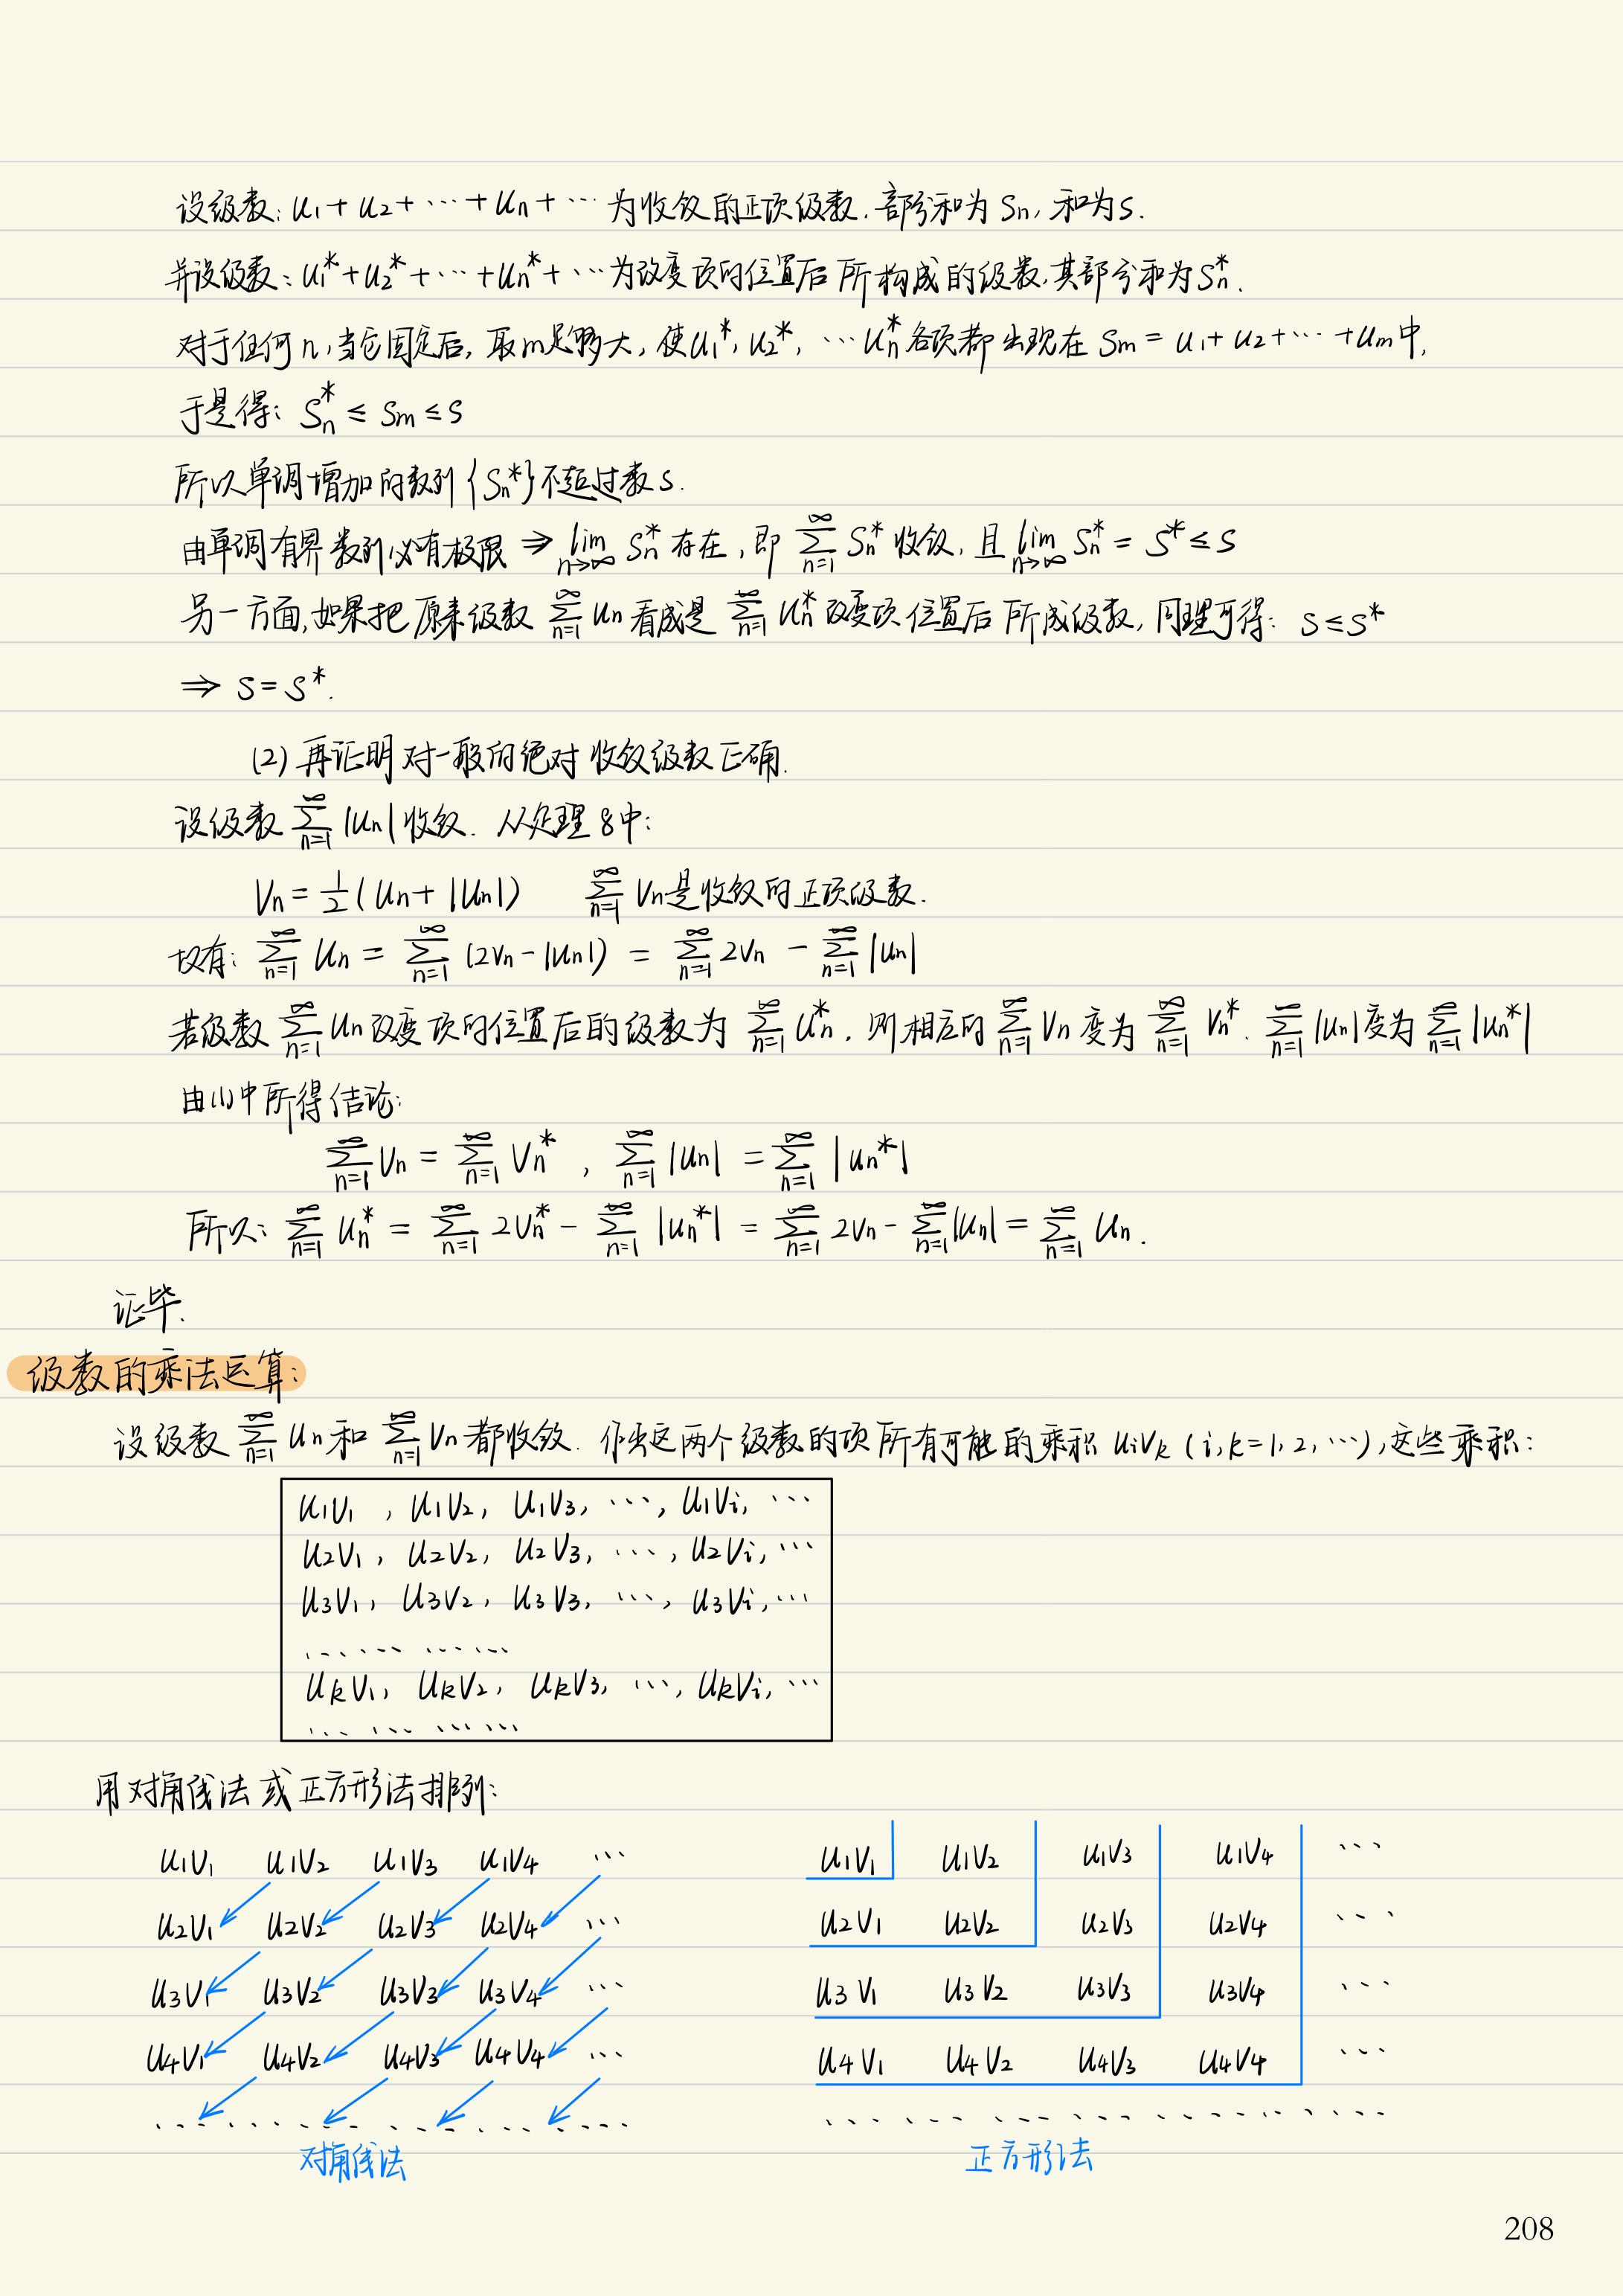 设级数: u₁+u₂+⋯+uₙ+⋯ 为收敛的正项级数. 部分和为 Sₙ, 和为s.
并设级数: u₁*+u₂*+⋯+uₙ*+⋯为改变项的位置后所构成的级数,其部分和为Sₙ*.
对于任何n,当它固定后, 取m足够大, 使u₁*, u₂*, ⋯uₙ*各项都出现在 Sm = u₁+u₂+⋯+um中,
于是得: Sₙ* ≤ Sm ≤ s
所以单调增加的数列{Sₙ*}不超过数s.
由单调有界数列必有极限 ⇒ lim(n→∞) Sₙ* 存在, 即 ∑(n=1→∞) Sₙ* 收敛, 且 lim(n→∞) Sₙ* = s* ≤ s
另一方面,如果把原来级数 ∑(n=1→∞) uₙ 看成是 ∑(n=1→∞) uₙ* 改变项位置后所成级数, 同理可得: s ≤ s*
⇒ s = s*.
(2) 再证明对一般的绝对收敛级数正确.
设级数 ∑(n=1→∞) |uₙ| 收敛. 从定理8中:
Vₙ = 1/2 (uₙ + |uₙ|) ∑(n=1→∞) Vₙ是收敛的正项级数.
故有: ∑(n=1→∞) uₙ = ∑(n=1→∞) (2vₙ - |uₙ|) = ∑(n=1→∞) 2vₙ - ∑(n=1→∞) |uₙ|
若级数 ∑(n=1→∞) uₙ 改变项的位置后的级数为 ∑(n=1→∞) uₙ*, 则相应的 ∑(n=1→∞) Vₙ 变为 ∑(n=1→∞) Vₙ*. ∑(n=1→∞) |uₙ| 变为 ∑(n=1→∞) |uₙ*|
由(1)中所得结论:
∑(n=1→∞) Vₙ = ∑(n=1→∞) Vₙ* , ∑(n=1→∞) |uₙ| = ∑(n=1→∞) |uₙ*|
所以: ∑(n=1→∞) uₙ* = ∑(n=1→∞) 2Vₙ* - ∑(n=1→∞) |uₙ*| = ∑(n=1→∞) 2vₙ - ∑(n=1→∞) |uₙ| = ∑(n=1→∞) uₙ.
证毕.
级数的乘法运算:
设级数 ∑(n=1→∞) uₙ 和 ∑(n=1→∞) Vₙ 都收敛. 作出这两个级数的项所有可能的乘积 uᵢvₖ (i,k=1,2,⋯),这些乘积:
u₁v₁ , u₁v₂, u₁v₃, ⋯, u₁vᵢ, ⋯
u₂v₁, u₂v₂, u₂v₃, ⋯, u₂vᵢ, ⋯
u₃v₁, u₃v₂, u₃v₃, ⋯, u₃vᵢ, ⋯
⋯⋯ ⋯⋯
uₖv₁, uₖv₂, uₖv₃, ⋯, uₖvᵢ, ⋯
⋯ ⋯ ⋯⋯
用对角线法或正方形法排列:
u₁v₁ u₁v₂ u₁v₃ u₁v₄ ⋯
u₂v₁ u₂v₂ u₂v₃ u₂v₄ ⋯
u₃v₁ u₃v₂ u₃v₃ u₃v₄ ⋯
u₄v₁ u₄v₂ u₄v₃ u₄v₄ ⋯
⋯⋯⋯⋯⋯
对角线法
u₁v₁ u₁v₂ u₁v₃ u₁v₄ ⋯
u₂v₁ u₂v₂ u₂v₃ u₂v₄ ⋯
u₃v₁ u₃v₂ u₃v₃ u₃v₄ ⋯
u₄v₁ u₄v₂ u₄v₃ u₄v₄ ⋯
⋯⋯⋯⋯⋯
正方形法
208